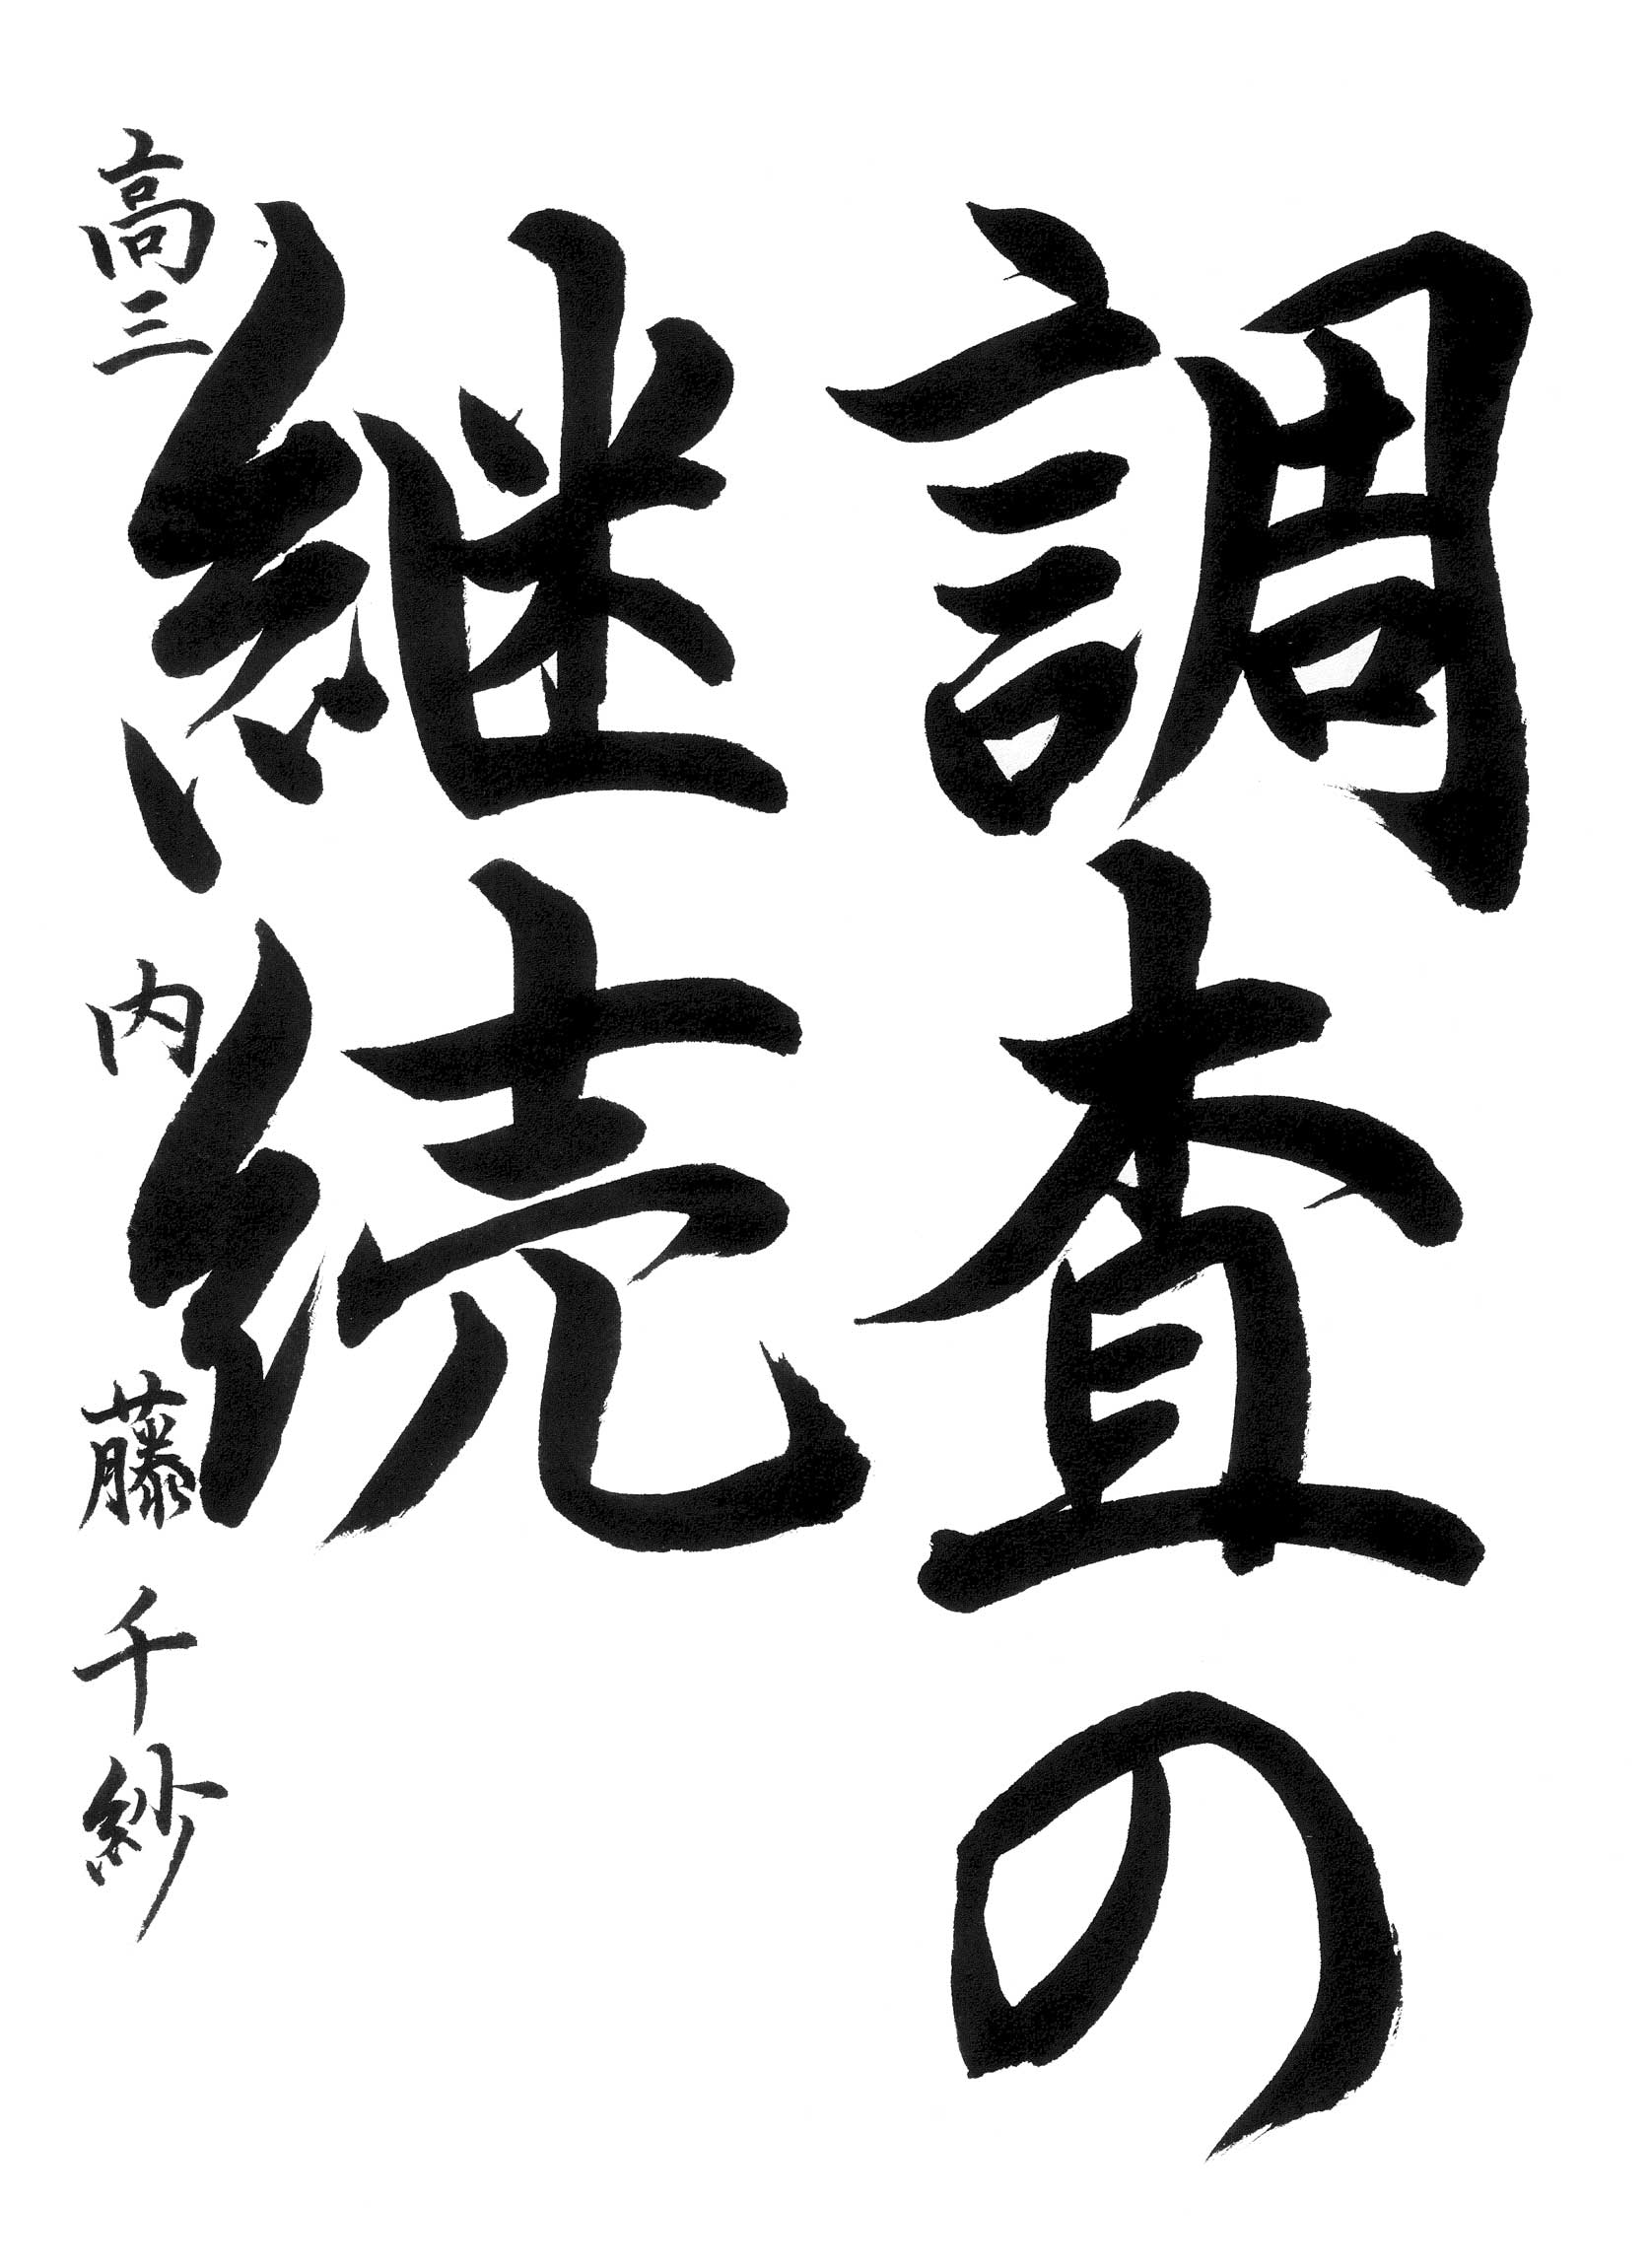 調査の
継続
高三 内藤千紗